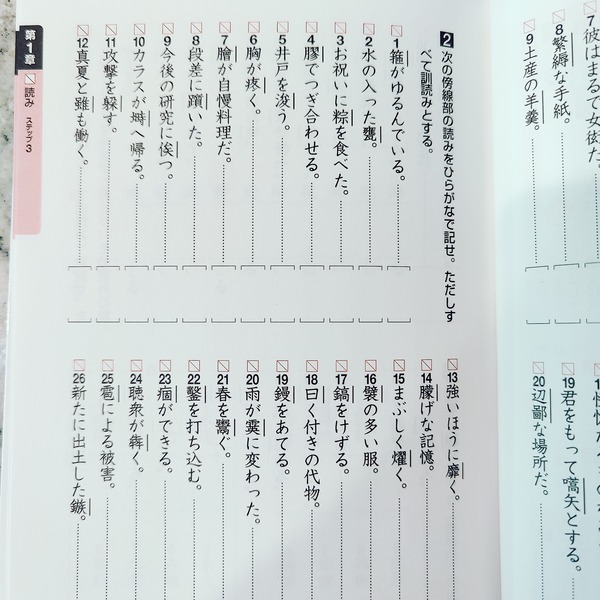 7 彼はまるで
8 繁縟な手紙。
9 土産の羊羹。
19 君をもって嚆矢とする。
20 辺鄙な場所だ。
2 次の傍線部の読みをひらがなで記せ。ただしす
べて訓読みとする。
1 箍がゆるんでいる。
2 水の入った甕。
3 お祝いに粽を食べた。
4 膠でつぎ合わせる。
5 井戸を浚う。
6 胸が疼く。
7 膾が自慢料理だ。
8 段差に躓いた。
9 今後の研究に俟つ。
10 カラスが塒へ帰る。
11 攻撃を躱す。
12 真夏と雖も働く。
13 強いほうに靡く。
14 朧げな記憶。
15 まぶしく燿く。
16 襞の多い服。
17 鎬をけずる。
18 曰く付きの代物。
19 鏝をあてる。
20 雨が霙に変わった。
21 春を鬻ぐ。
22 鑿を打ち込む。
23 痼ができる。
24 聴衆が犇く。
25 雹による被害。
26 新たに出土した鏃。
第1章 読み ステップ3